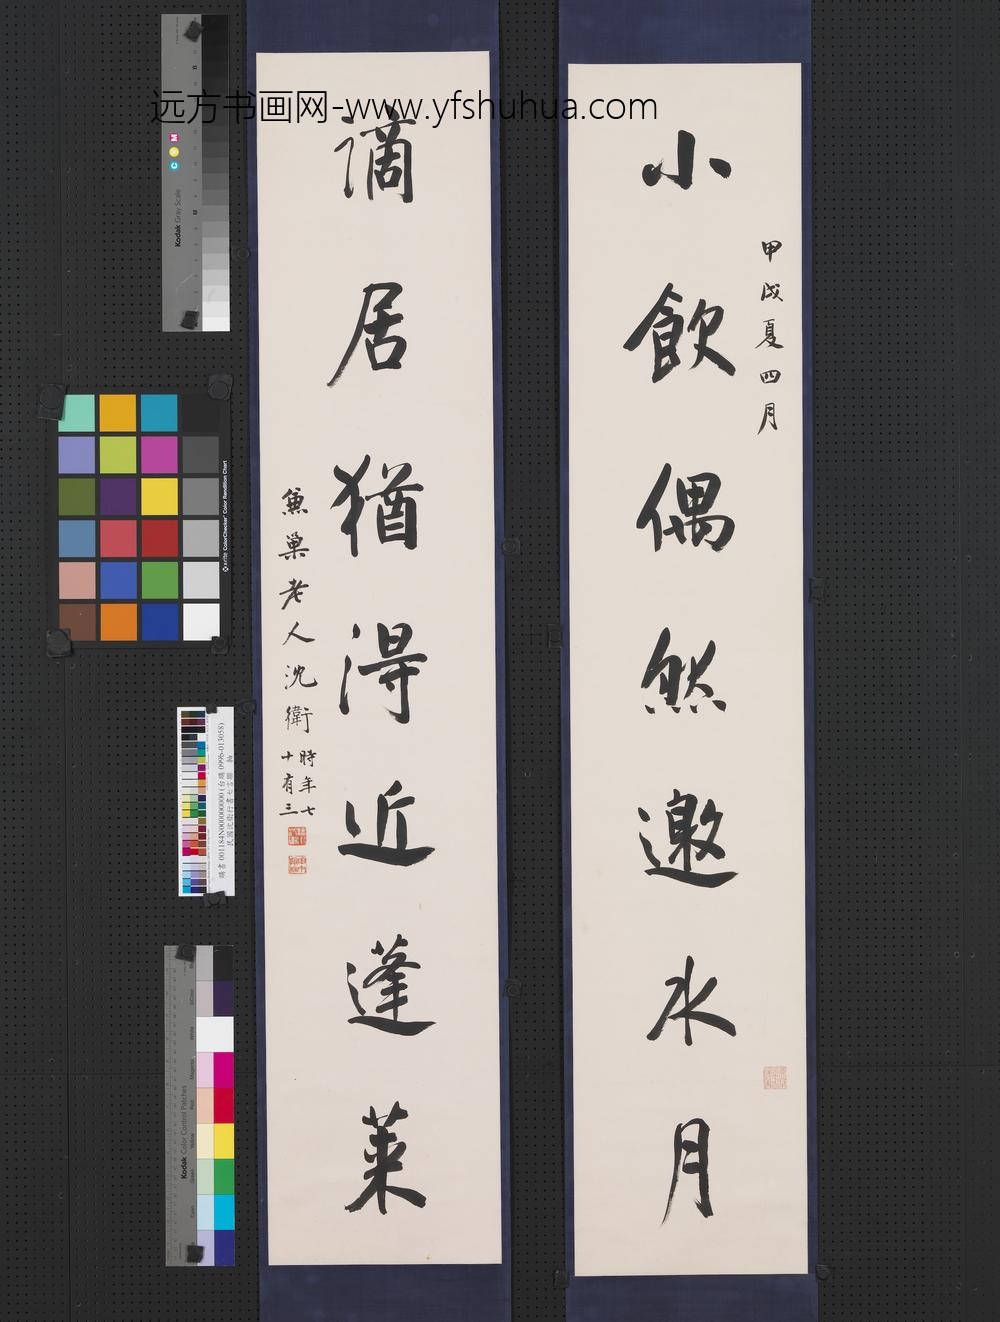 远方书画网-www.yfshuhua.com
小飲偶然邀水月
甲戌夏四月
謫居猶得近蓬萊
兼巢老人沈衛
時年七
十有三
Kodak Gray Scale
C
Y
M
B
M
x-rite ColorChecker Color Rendition Chart
購書 001184N000000000 (台購 0996-013058)
民國沈衛行書七言聯 軸
Kodak Color Control Patches
Black
3/Color
White
Magenta
Red
Yellow
Green
Cyan
Blue